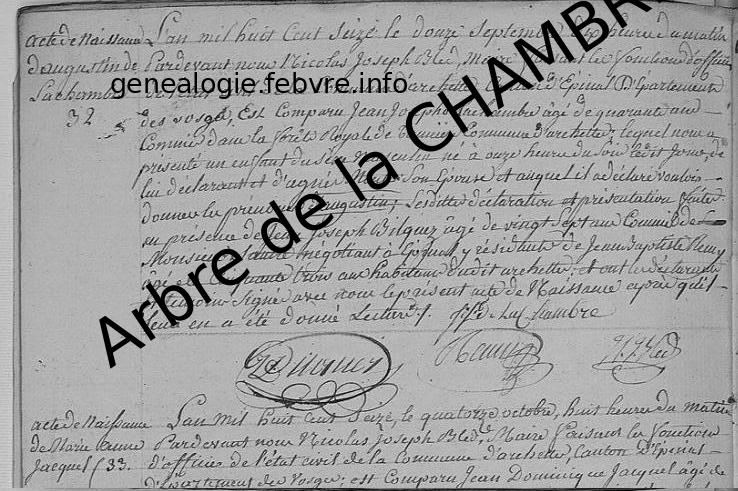 acte de Naissance
d'augustin de
Lachambre
32
L'an mil huit Cent Seize le douze Septembre heure du matin
Pardevant nous Nicolas Joseph Bled, Maire faisant les fonctions d'officier
d'archette Canton d'Epinal Département
des vosges, Est Comparu Jean Joseph âgé de quarante ans
Commis dans la forêts Royale de Commune d'archette; lequel nous a
présenté un enfant du Sexe Masculin né à onze heure du Soir ledit Jour, de
lui déclarant et d'agnès Son Epouse et auquel il a déclaré vouloir
donner le prénom d'augustin; Lesdittes déclaration et présentation faites
en présence de Jean Joseph Bilquez âgé de vingt Sept ans Commis de
Monsieur négociant à Epinal y résident et de Jean Baptiste Remy
âgé de Cinquante trois ans habitant dudit archette; et ont le déclarant
et témoins Signé avec nous le présent acte de Naissance après qu'il
leur en a été donné Lecture. J. J. de La Chambre
Remy
N. J. Bled
acte de Naissance
de Marie anne
Jacquel 33.
L'an mil huit cent Seize, le quatorze octobre, huit heure du matin
Pardevant nous Nicolas Joseph Bled, Maire faisant les fonction
d'officier de l'état civil de la Commune d'archette, Canton d'Epinal
Département des Vosges; est Comparu Jean Dominique Jacquel âgé de
genealogie.febvre.info
Arbre de la CHAMBRE